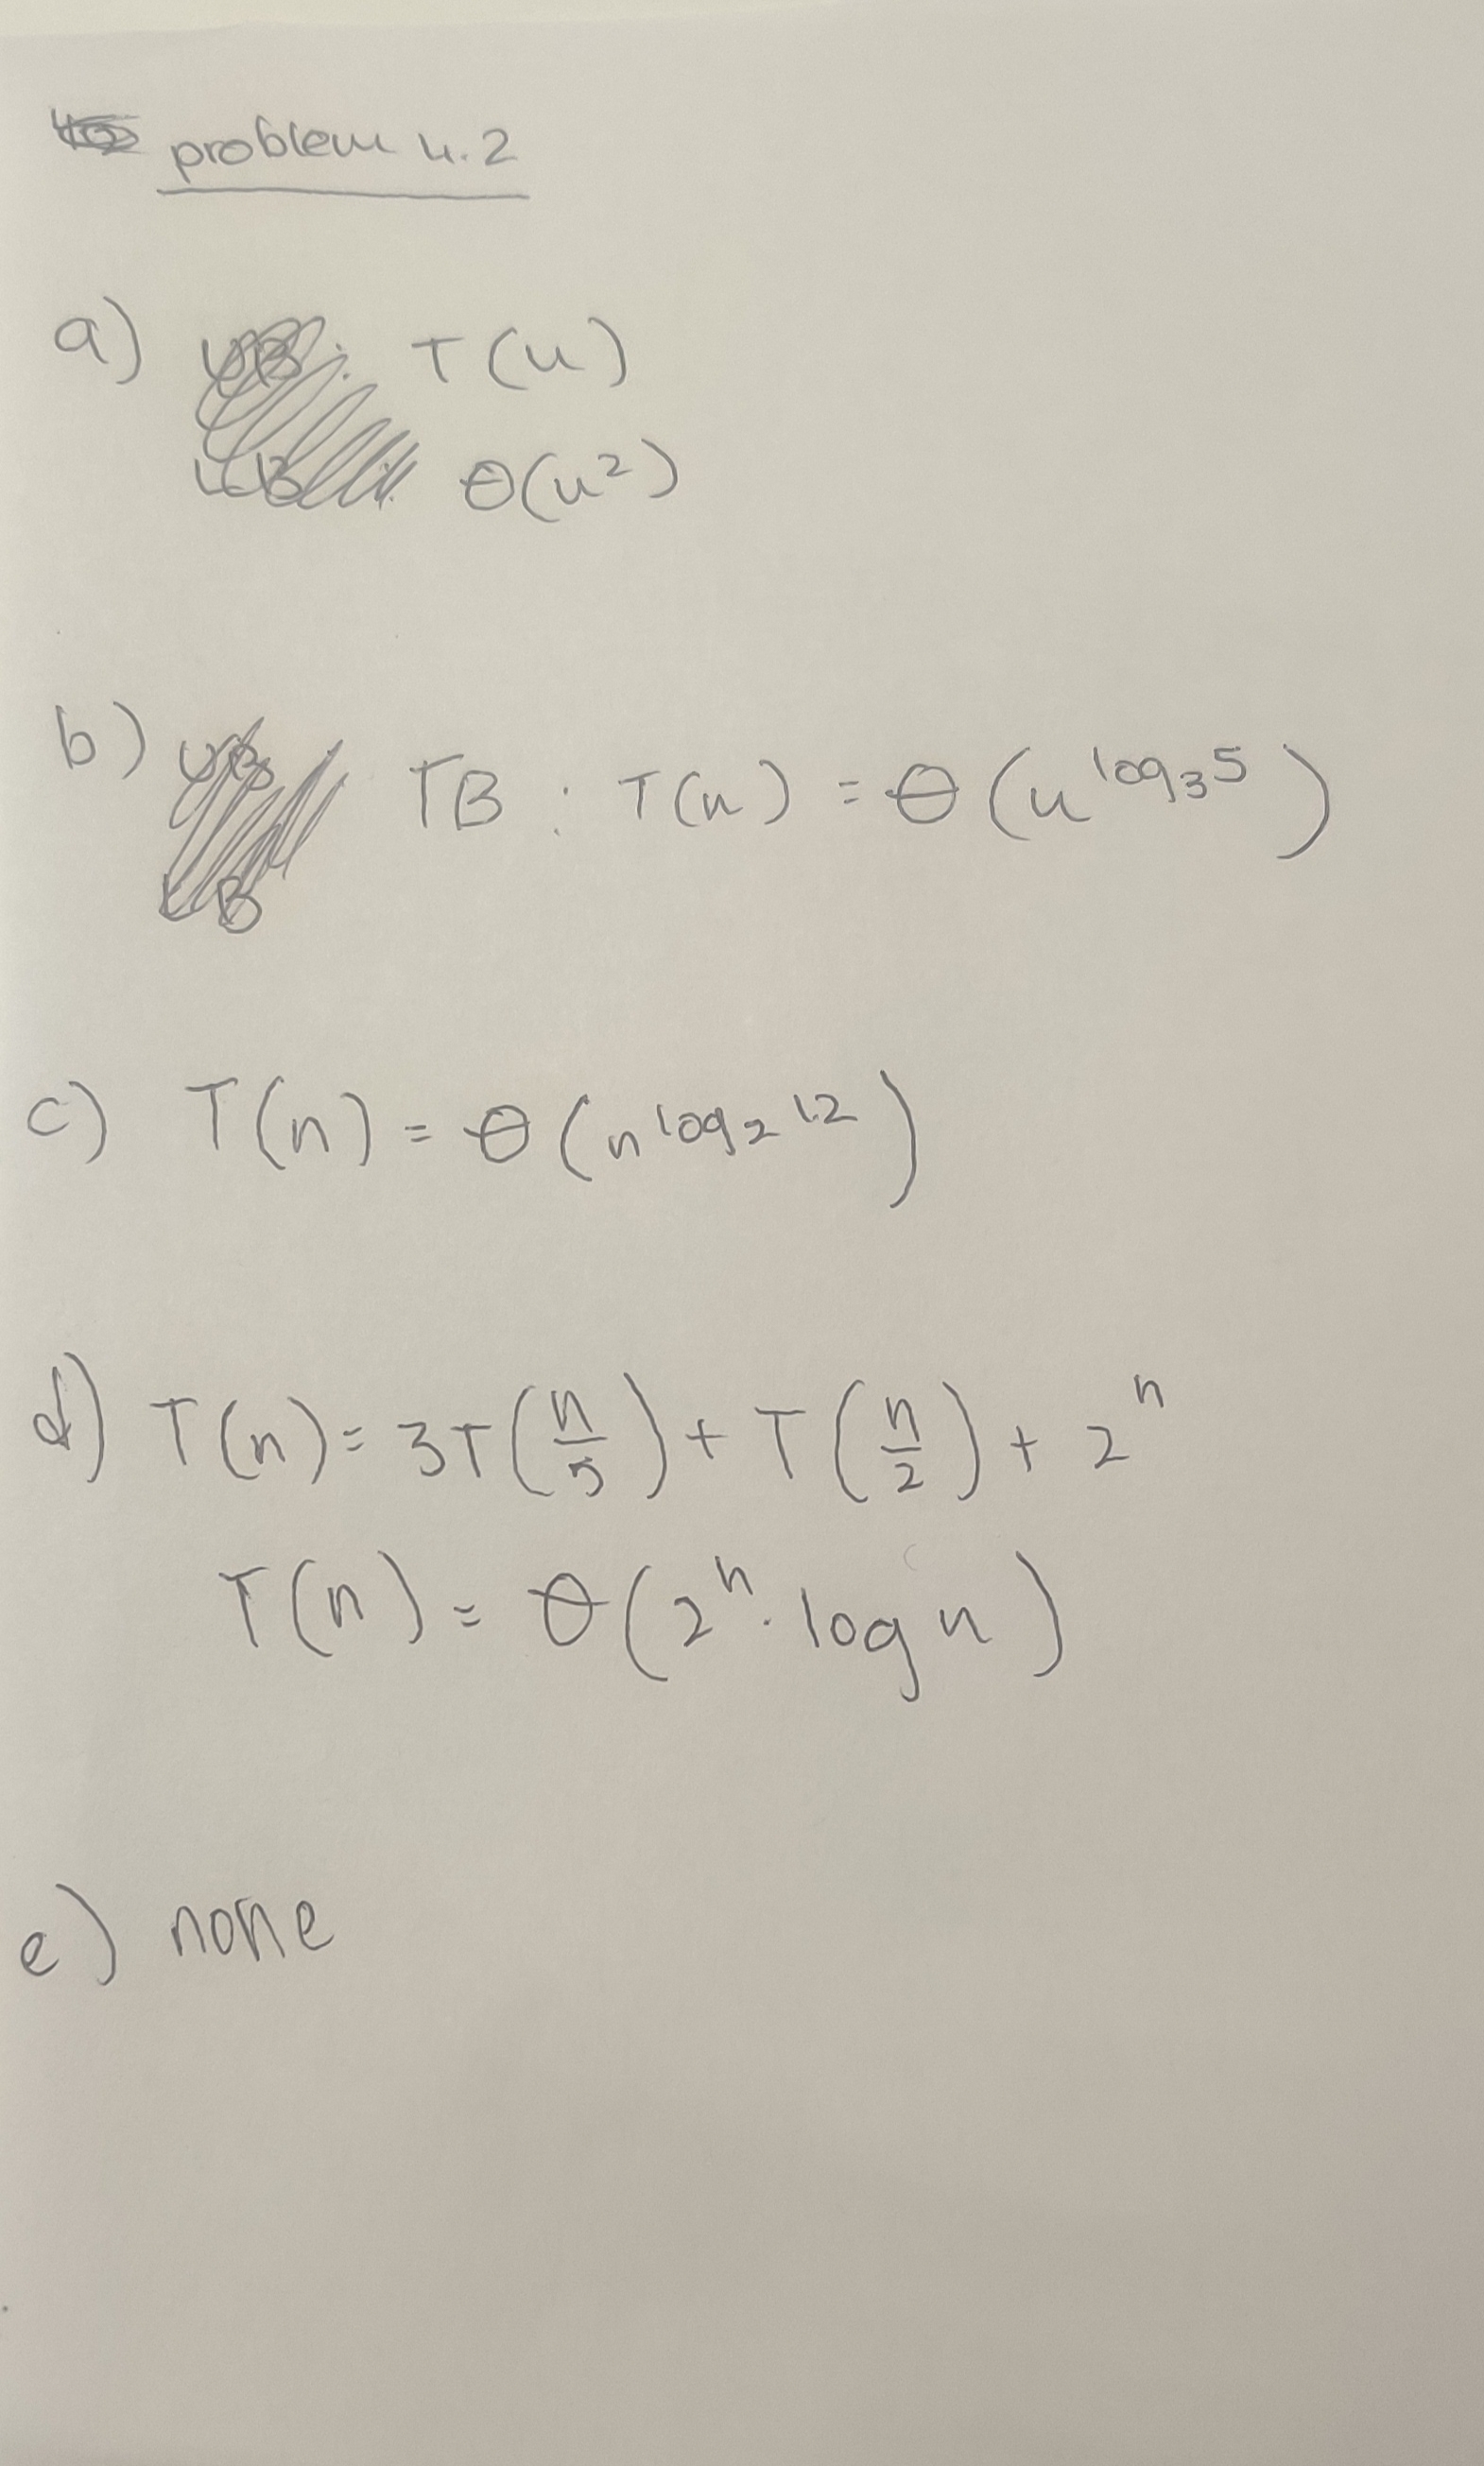 problem 4.2
a) T(n)
Θ(n²)
b) TB : T(n) = Θ(n^log₃5)
c) T(n) = Θ(n^log₂12)
d) T(n) = 3T(n/5) + T(n/2) + 2ⁿ
T(n) = Θ(2ⁿ · log n)
e) none